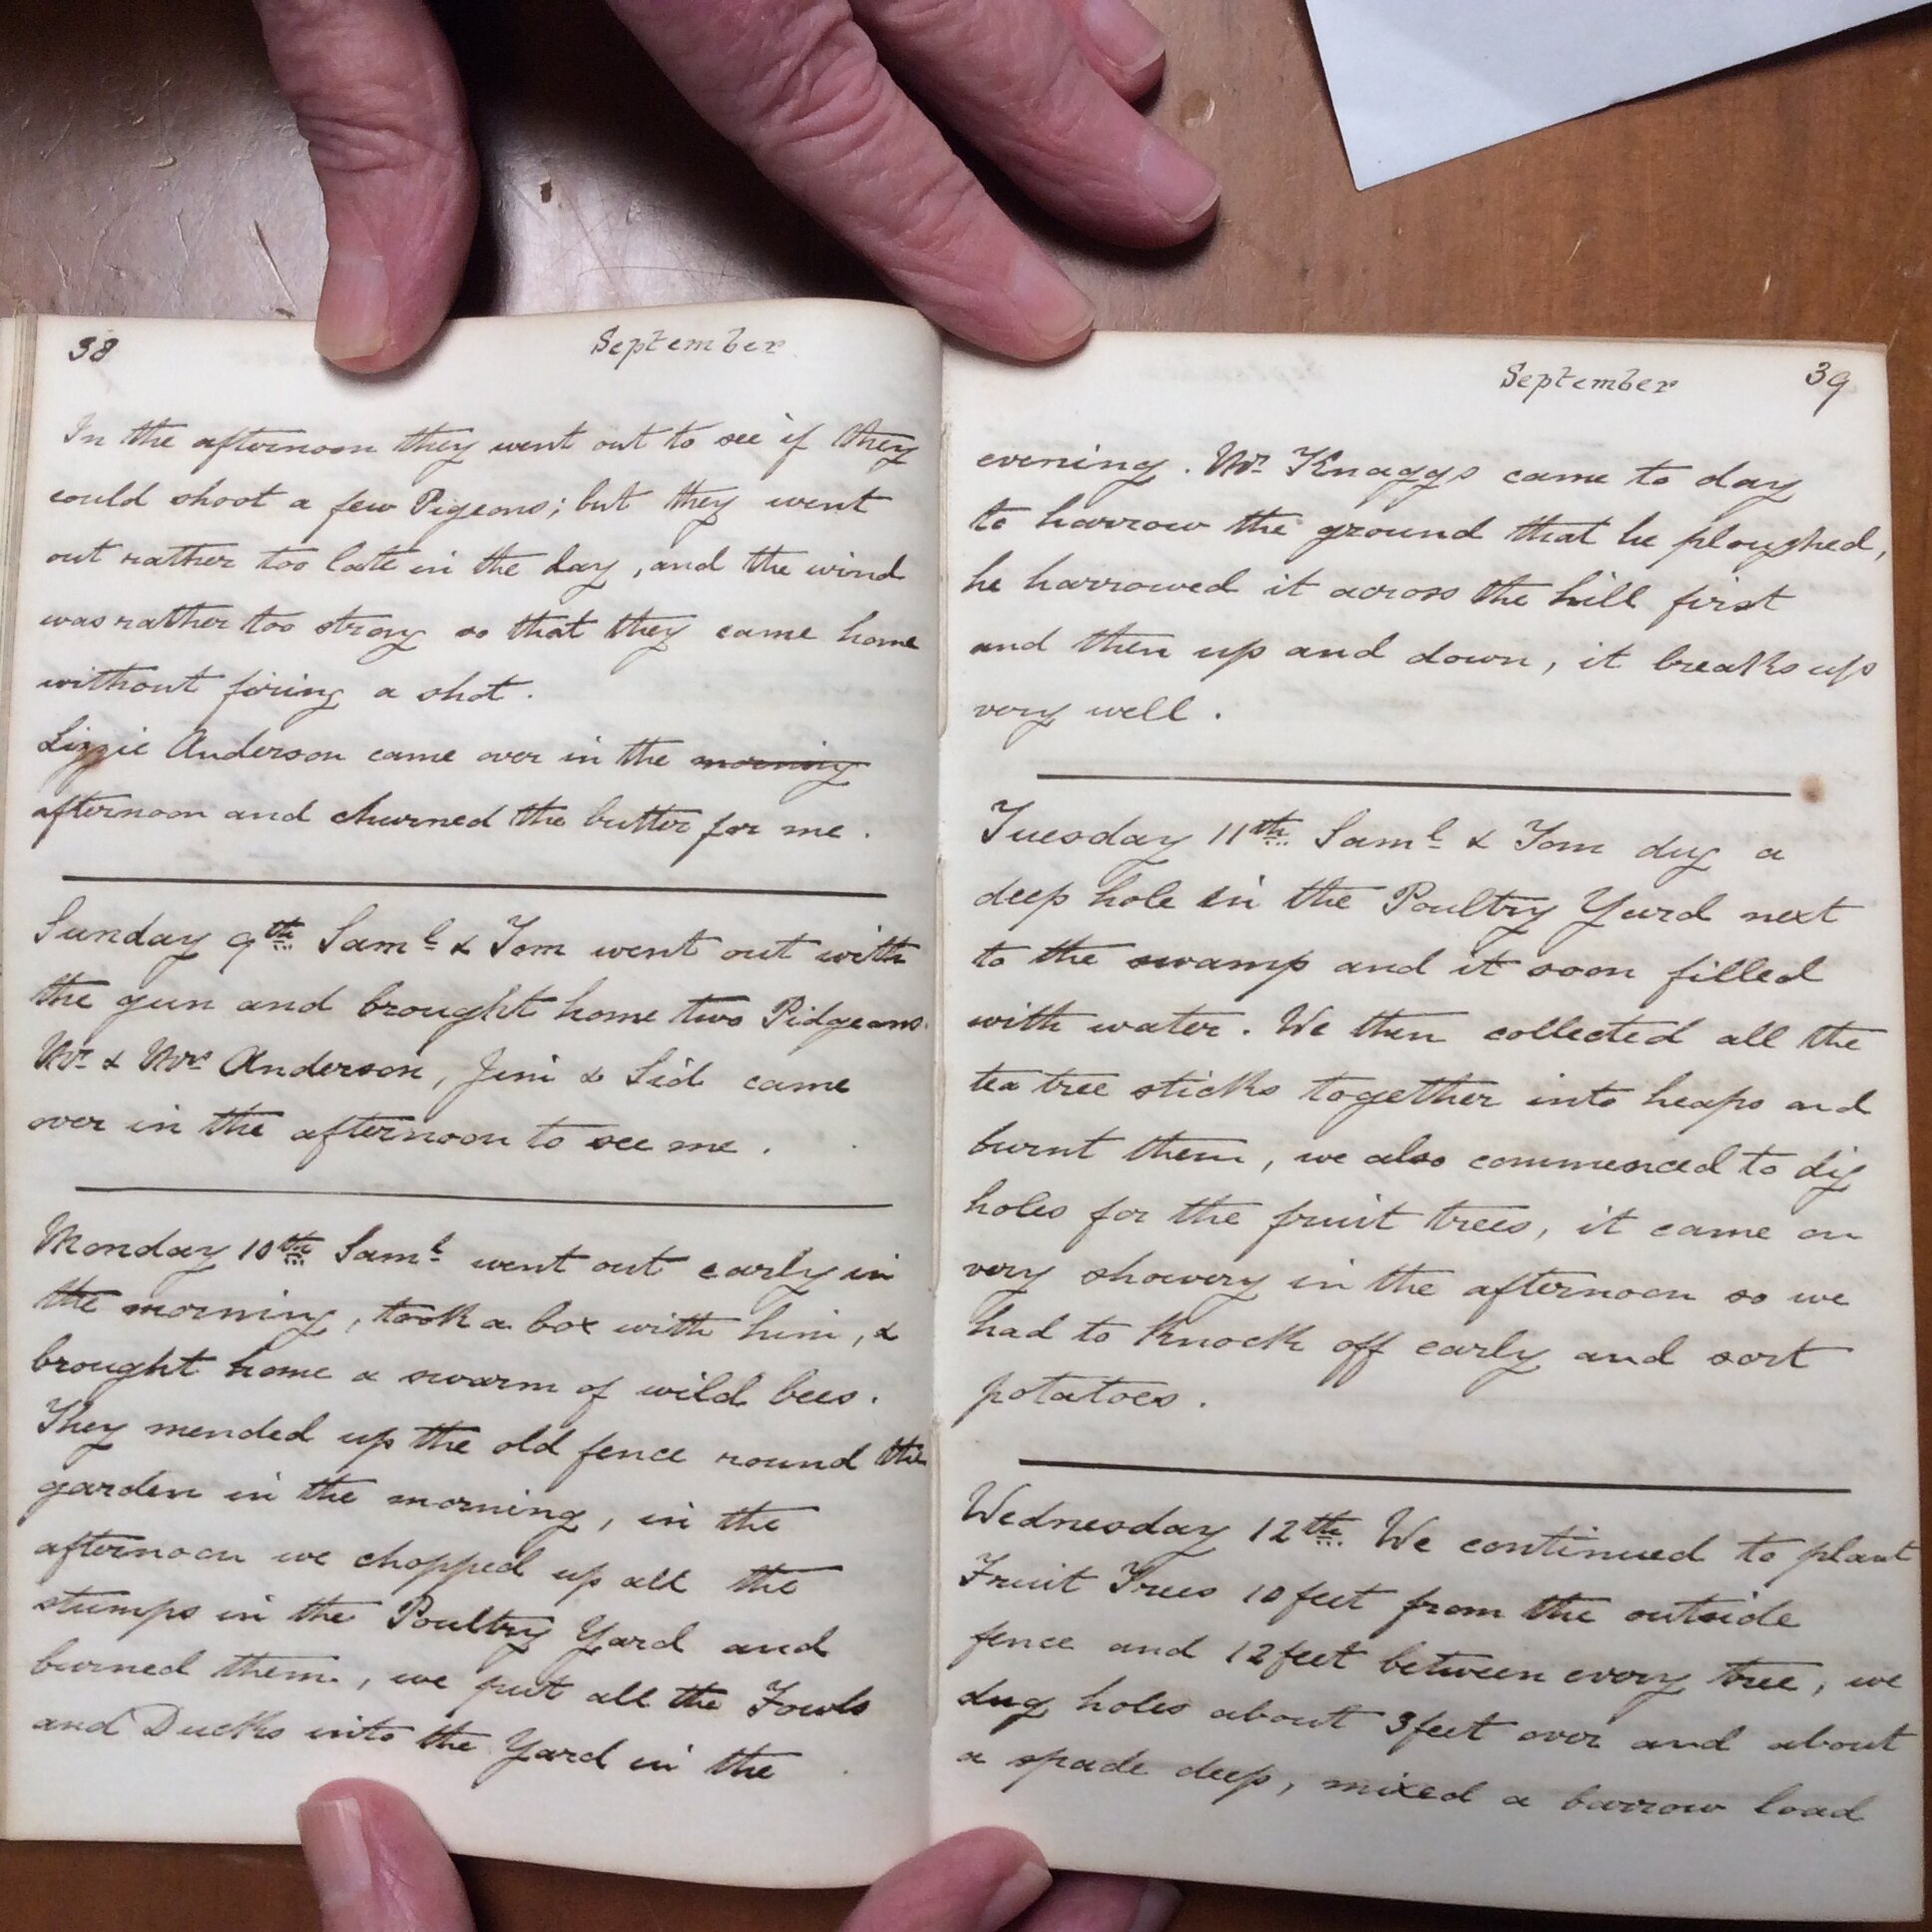 38 September
In the afternoon they went out to see if they
could shoot a few Pigeons; but they went
out rather too late in the day, and the wind
was rather too strong so that they came home
without firing a shot.
Lizzie Anderson came over in the morning
afternoon and churned the butter for me.
Sunday 9th Saml & Tom went out with
the gun and brought home two Pidgeons.
Mr & Mrs Anderson, Jim & Sid came
over in the afternoon to see me.
Monday 10th Saml went out early in
the morning, took a box with him, &
brought home a swarm of wild bees.
They mended up the old fence round the
garden in the morning, in the
afternoon we chopped up all the
stumps in the Poultry Yard and
burned them, we put all the Fowls
and Ducks into the Yard in the
September 39
evening. Mr Knaggs came to day
to harrow the ground that he ploughed,
he harrowed it across the hill first
and then up and down, it breaks up
very well.
Tuesday 11th Saml & Tom dug a
deep hole in the Poultry Yard next
to the swamp and it soon filled
with water. We then collected all the
tea tree sticks together into heaps and
burnt them, we also commenced to dig
holes for the fruit trees, it came on
very showery in the afternoon so we
had to knock off early and sort
potatoes.
Wednesday 12th We continued to plant
Fruit Trees 10 feet from the outside
fence and 12 feet between every tree, we
dug holes about 3 feet over and about
a spade deep, mixed a barrow load